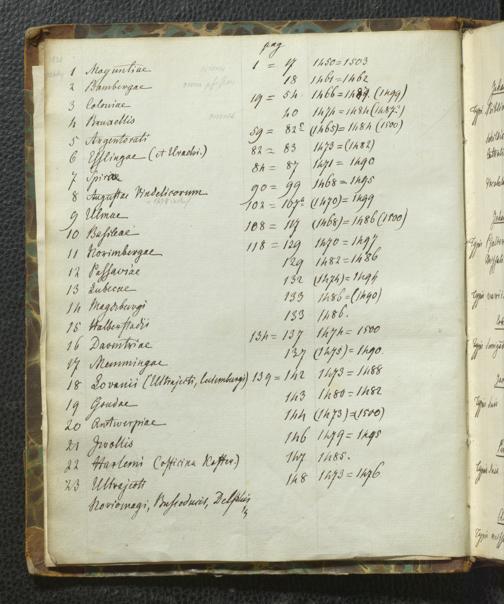 pag
1 Moguntiae 1 = 17 1450=1503
2 Bambergae 18 1461=1462
3 Coloniae 19 = 54 1466=1487 (1499)
4 Bruxellis 40 1474=1484 (1487)
5 Argentorati 59 = 82 (1465)=1484 (1500)
6 Esslingae (et Urachi.) 82 = 83 1473=(1482)
7 Spirae 84 = 87 1471=1490
8 Augustae Vindelicorum 90 = 99 1468=1495
9 Ulmae 102 = 107 (1470)=1499
10 Basileae 108 = 117 (1468)=1486 (1500)
11 Norimbergae 118 = 129 1470=1497
12 Passaviae 129 1482=1486
13 Lubecae 132 (1474)=1494
14 Magdeburgi 133 1486=(1490)
15 Halberstadii 133 1486.
16 Daventriae 134 = 137 1474=1500
17 Memmingae 137 (1475)=1490.
18 Lovanii (Ultrajecti, Culemburgi) 139 = 142 1473=1488
19 Goudae 143 1480=1482
20 Antwerpiae 144 (1473)=(1500)
21 Zwollis 146 1479=1495
22 Harlemi (officina Koster.) 147 1485.
23 Ultrajecti 148 1473=1476
Noviomagi, Buscoducis, Delphis